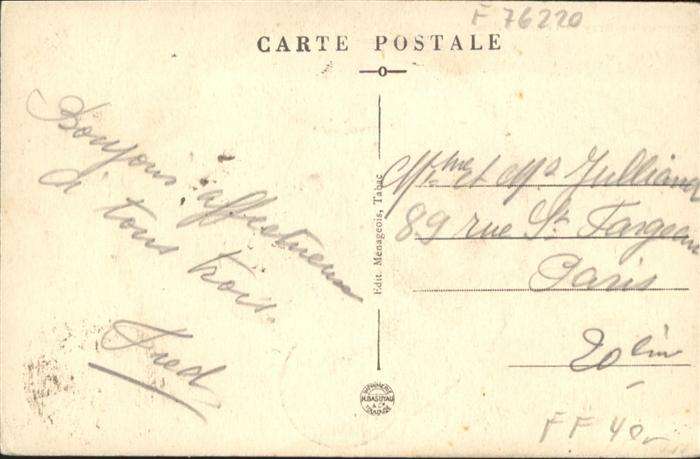 F 76220
CARTE POSTALE
Bonjour affectueux
à tous trois.
Fred
Edit. Menageois, Tabac
Mme et Mr Jullian
89 rue St Fargeau
Paris
20
IMPRIMERIE
H. BASUYAU
& Cie
TOULOUSE
FF 40